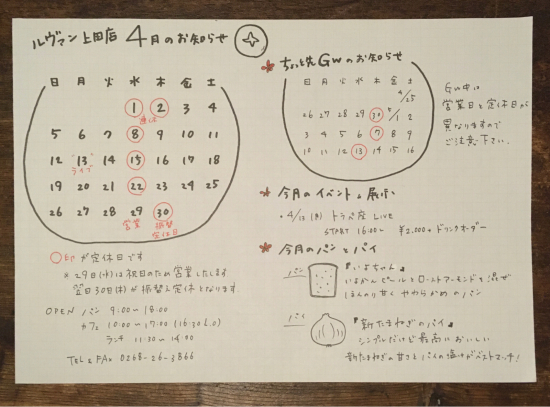 ルヴァン上田店 4月のお知らせ
日 月 火 水 木 金 土
1 2 3 4
連休
5 6 7 8 9 10 11
12 13 14 15 16 17 18
ライブ
19 20 21 22 23 24 25
26 27 28 29 30
営業 振替定休日
○印が定休日です
※29日(水)は祝日のため営業いたします
翌日30日(木)が振替え定休となります。
OPEN パン 9:00〜18:00
カフェ 10:00〜17:00 (16:30 L.O)
ランチ 11:30〜14:00
TEL&FAX 0268-26-3866
ちょっと先GWのお知らせ
日 月 火 水 木 金 土
4/25
26 27 28 29 30 5/1 2
3 4 5 6 7 8 9
10 11 12 13 14 15 16
GW中は
営業日と定休日が
異なりますので
ご注意下さい。
今月のイベント&展示
・4/13(月) トラペ座 LIVE
START 16:00〜 ¥2,000+ドリンクオーダー
今月のパンとパイ
パン
『いよちゃん』
いよかんピールとローストアーモンドを混ぜ
ほんのり甘く やわらかめのパン
パイ
『新たまねぎのパイ』
シンプルだけど最高においしい
新たまねぎの甘さとパイの塩けがベストマッチ!